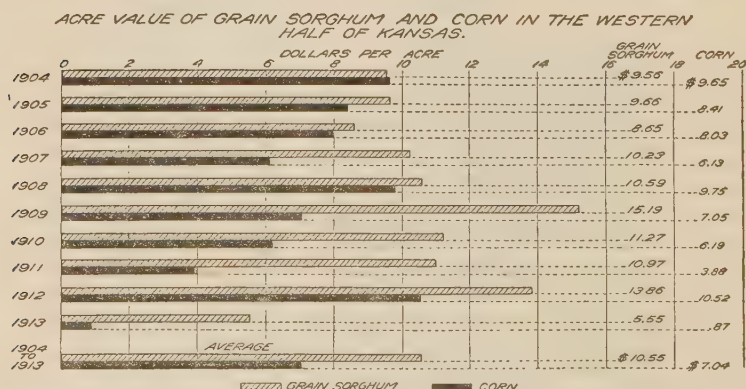 ACRE VALUE OF GRAIN SORGHUM AND CORN IN THE WESTERN
HALF OF KANSAS.
DOLLARS PER ACRE GRAIN SORGHUM CORN
0 2 4 6 8 10 12 14 16 18 20
1904 $9.56 $9.65
1905 9.66 8.41
1906 8.65 8.03
1907 10.23 6.13
1908 10.59 9.75
1909 15.19 7.05
1910 11.27 6.19
1911 10.97 3.88
1912 13.86 10.52
1913 5.55 .87
1904 TO 1913 AVERAGE $10.55 $7.04
GRAIN SORGHUM CORN